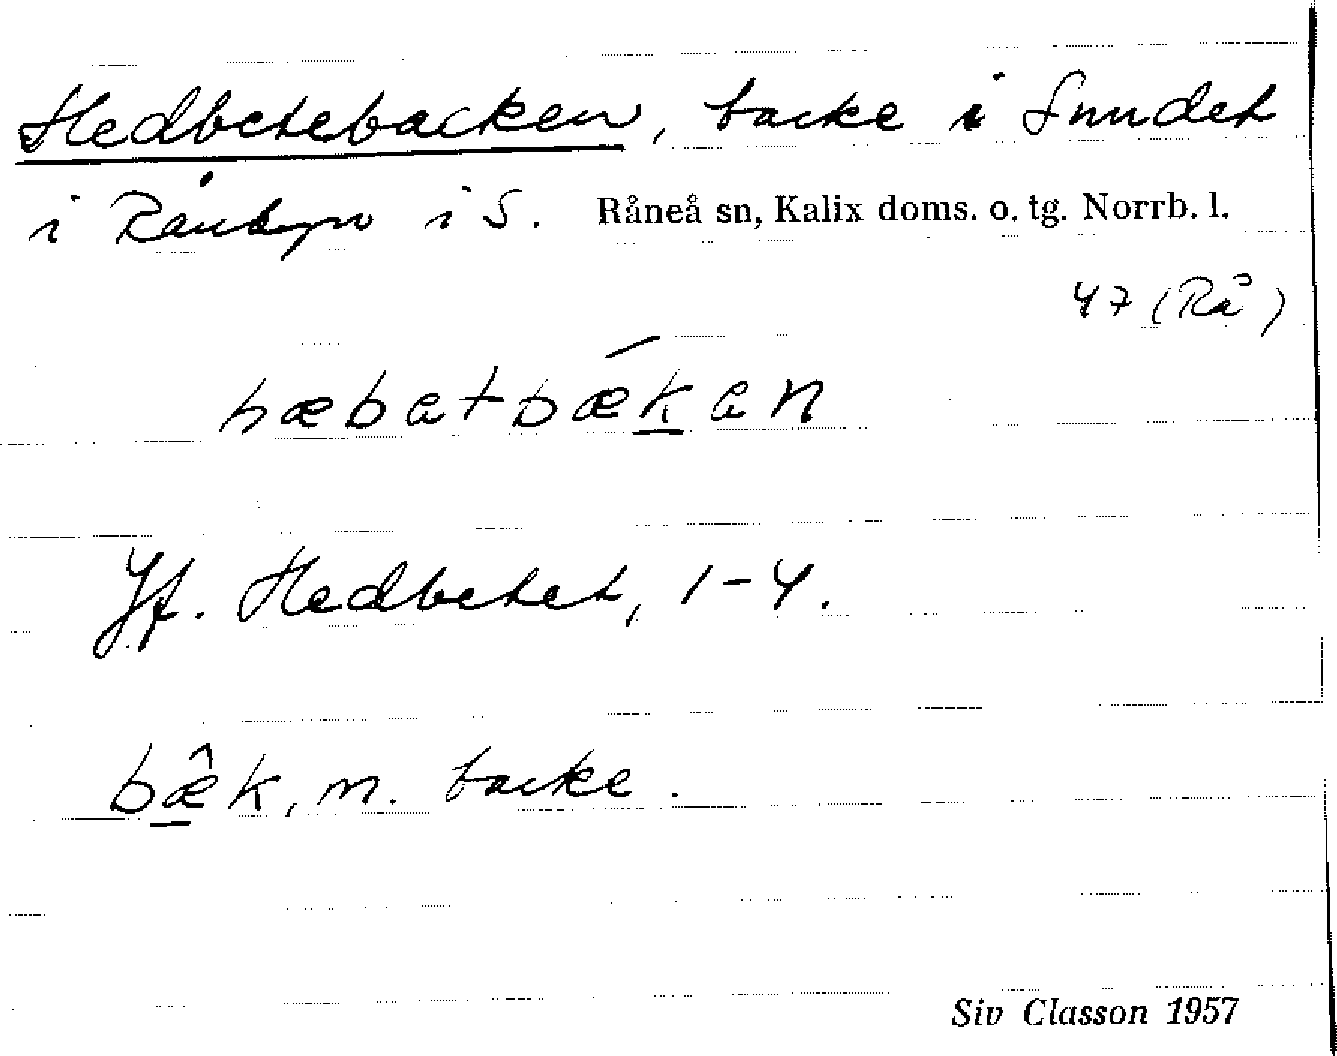 Hedbetebacken, backe i Sundet
i Rånbyn i S. Råneå sn, Kalix doms. o. tg. Norrb. l.
47 (Rå)
hæbatbǽkan
Jf. Hedbetet, 1-4.
bæ̂k, m. backe.
Siv Classon 1957